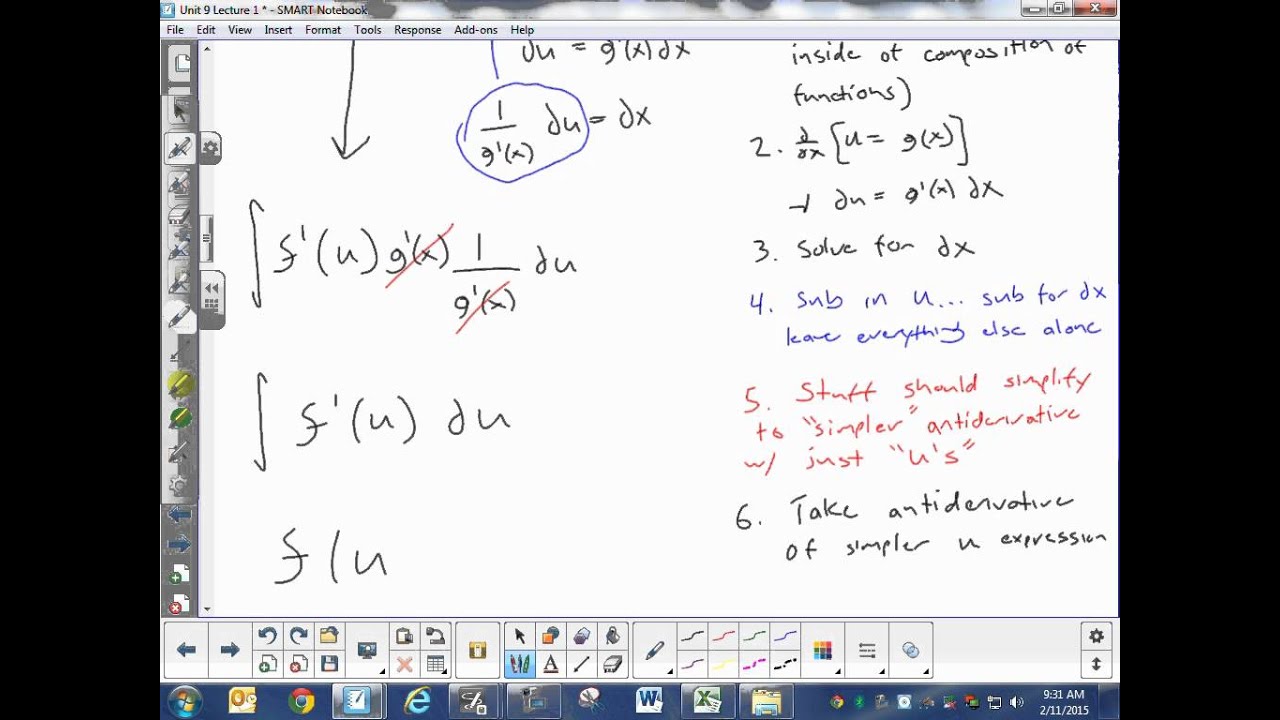 Unit 9 Lecture 1 * - SMART Notebook
File Edit View Insert Format Tools Response Add-ons Help
du = g'(x) dx
1/g'(x) du = dx
∫ f'(u) g'(x) 1/g'(x) du
∫ f'(u) du
f(u
inside of composition of
functions)
2. d/dx [u = g(x)]
→ du = g'(x) dx
3. Solve for dx
4. Sub in u... sub for dx
leave everything else alone
5. Stuff should simplify
to "simpler" antiderivative
w/ just "u's"
6. Take antiderivative
of simpler u expression
9:31 AM
2/11/2015